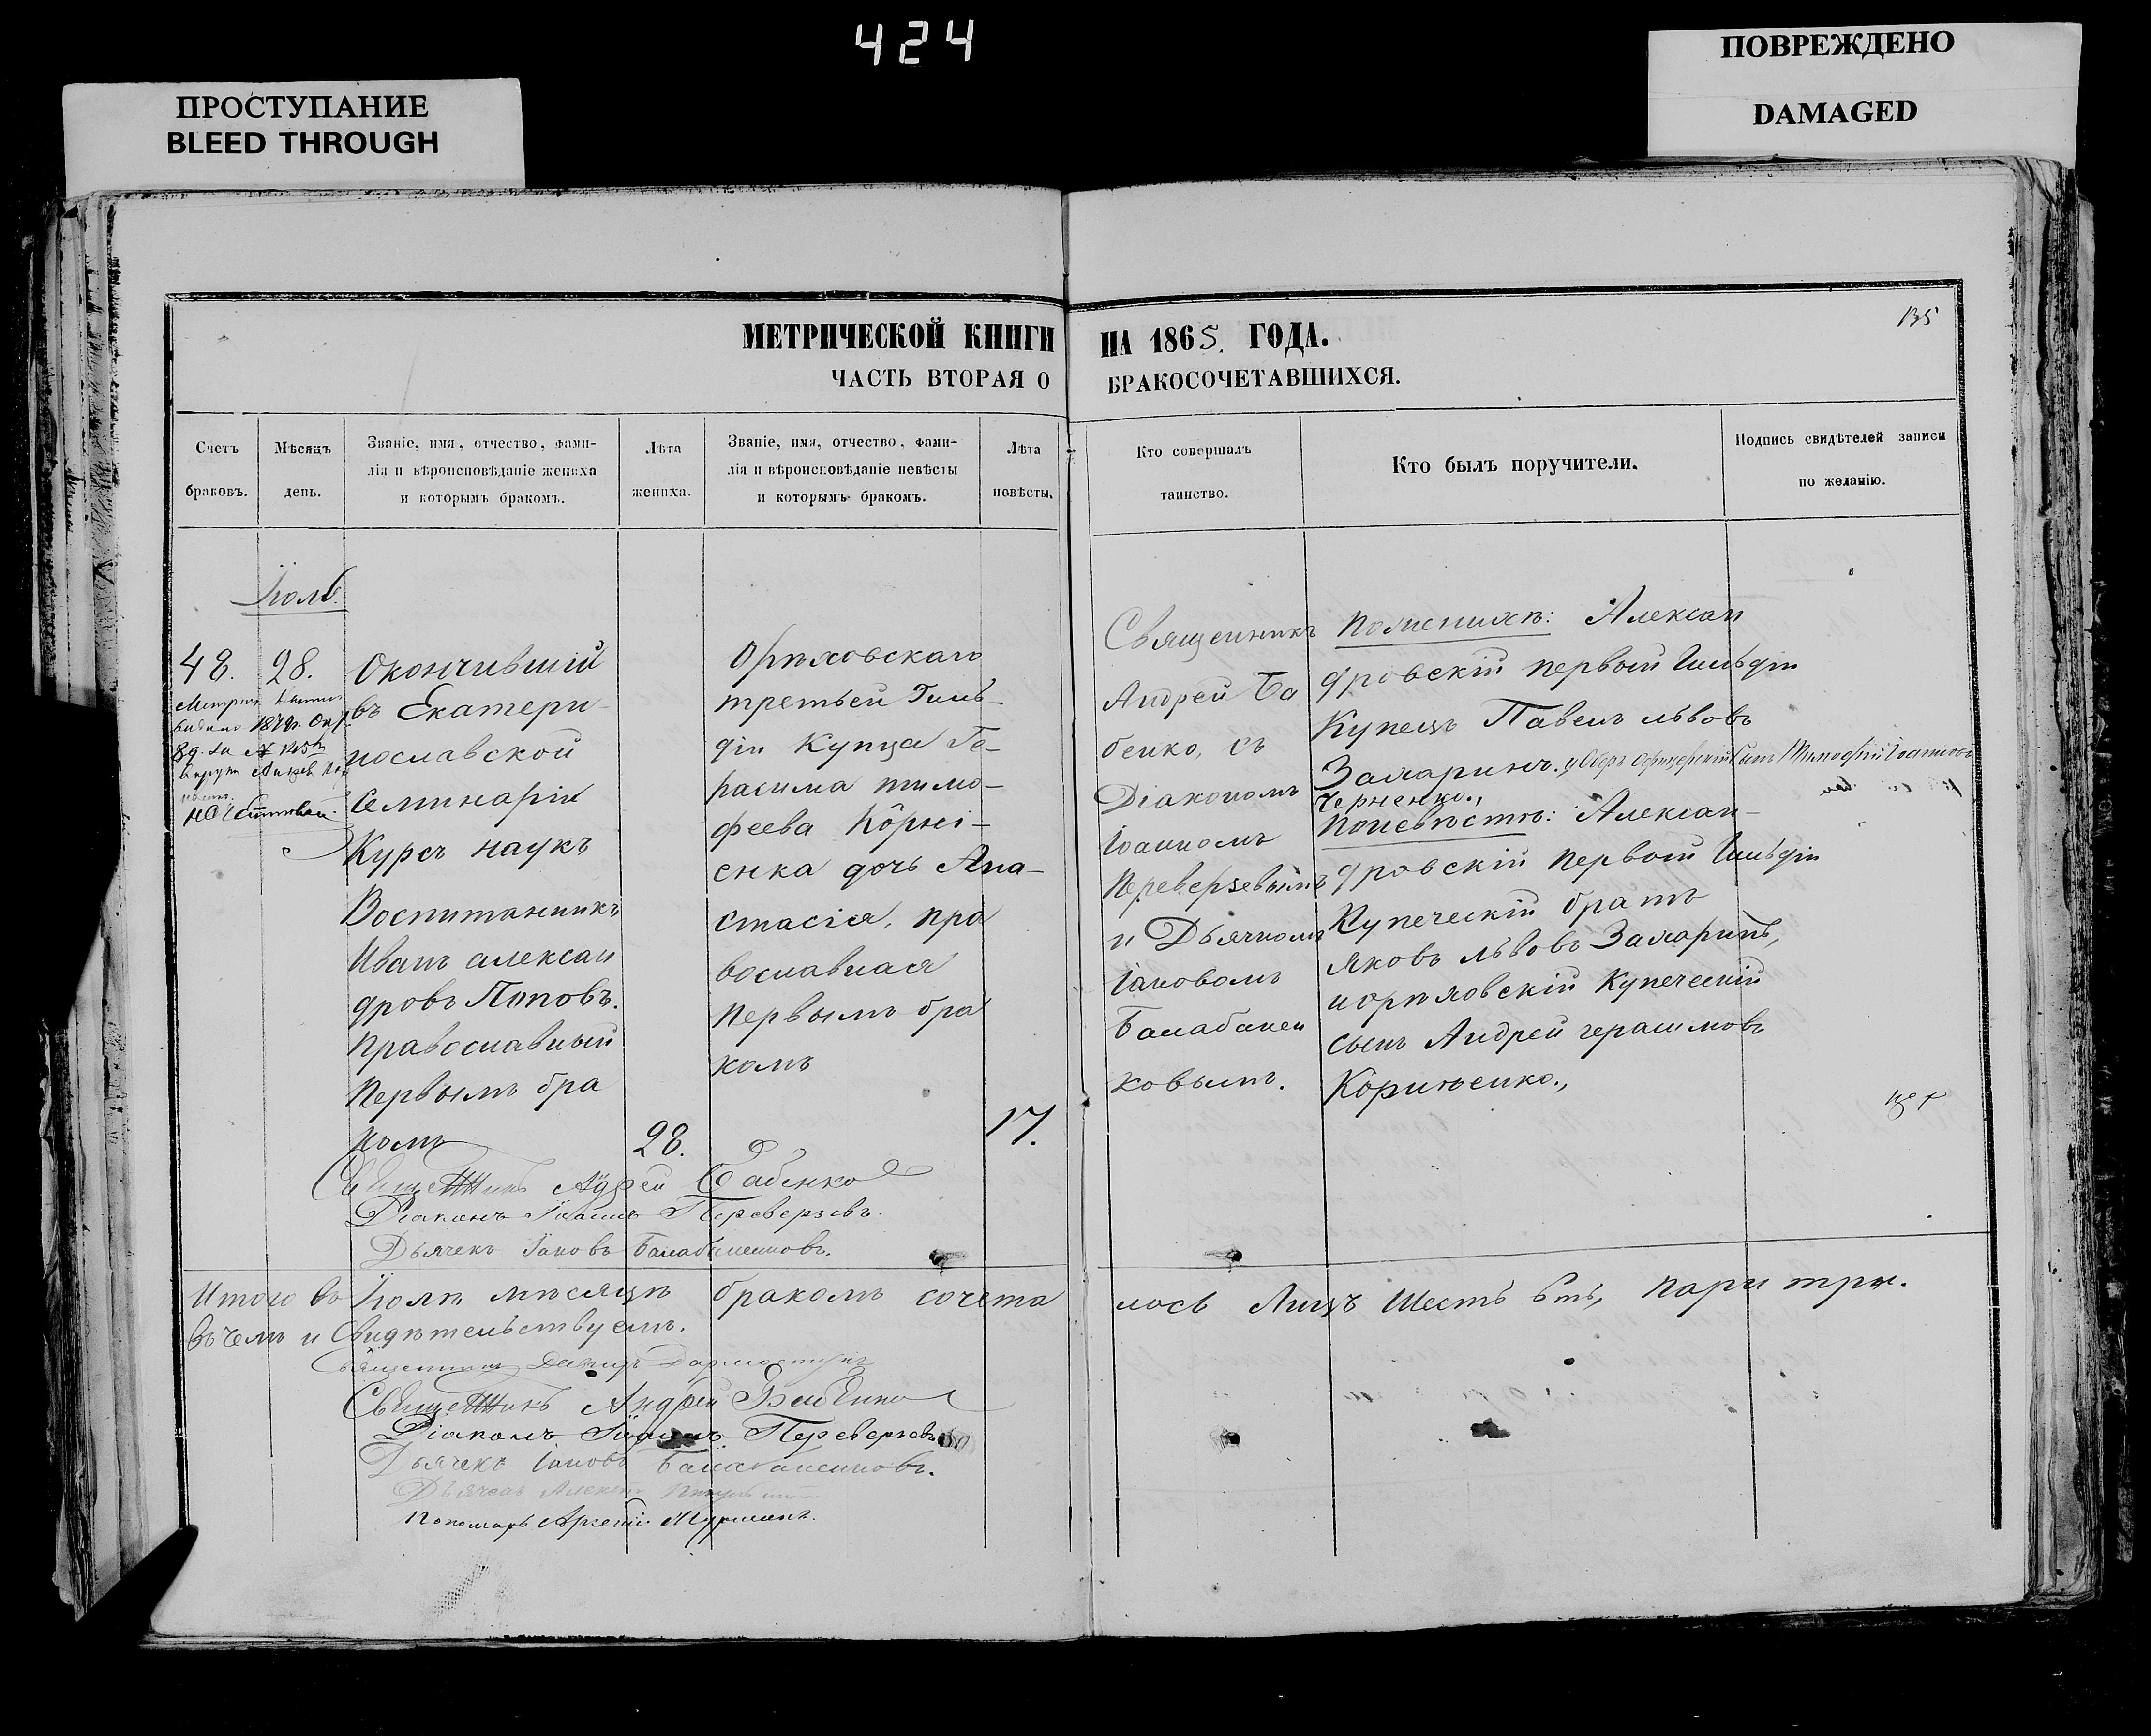 424
ПРОСТУПАНИЕ
BLEED THROUGH
ПОВРЕЖДЕНО
DAMAGED
135
МЕТРИЧЕСКОЙ КНИГИ НА 1865. ГОДА.
ЧАСТЬ ВТОРАЯ О БРАКОСОЧЕТАВШИХСЯ.
Счетъ
браковъ.
Мѣсяцъ
день.
Званіе, имя, отчество, фами-
лія и вѣроисповѣданіе жениха
и которымъ бракомъ.
Лѣта
жениха.
Званіе, имя, отчество, фами-
лія и вѣроисповѣданіе невѣсты
и которымъ бракомъ.
Лѣта
невѣсты.
Кто совершалъ
таинство.
Кто былъ поручители.
Подпись свидѣтелей записи
по желанію.
Іюль.
48.
28.
Окончившій
въ Екатери-
нославской
Семинаріи
Курсъ наукъ
Воспитанникъ
Иванъ алексан
дровъ Поповъ.
православный
первымъ бра
комъ
28.
Орѣховскаго
третьей Гиль-
діи Купца Ге-
расима тимо-
феева Корні-
енка дочь Ана-
стасія, пра
вославная
первымъ бра
комъ
17.
Священникъ
Андрей Ба
бенко, съ
Діакономъ
Іоанномъ
Переверзевымъ
и Дьячкомъ
Іаковомъ
Балабанен
ковымъ.
По женихѣ: Алексан
дровскій первой Гильдіи
Купецъ Павелъ львовъ
Захаринъ. и Оберъ Офицерскій Сынъ Тимофій Іоанновъ
Черненко.,
По невѣстѣ: Алексан-
дровскій первой Гильдіи
Купеческій братъ
Яковъ львовъ Захаринъ,
и орѣховскій Купеческій
сынъ Андрей герасимовъ
Корніенко.,
Священникъ Андрей Бабенко
Діаконъ Іоаннъ Переверзевъ.
Дьячекъ Іаковъ Балабаненковъ.
Итого въ Іюлѣ мѣсяцѣ бракомъ сочета лось Лицъ Шесть 6ть, пари три.
въ чемъ и Свидѣтельствуемъ.
Священникъ
Священникъ Андрей Бабенко
Діаконъ Іоаннъ Переверзевъ
Дьячекъ Іаковъ Балабаненковъ.
Дьячекъ
Пономарь Арсеній